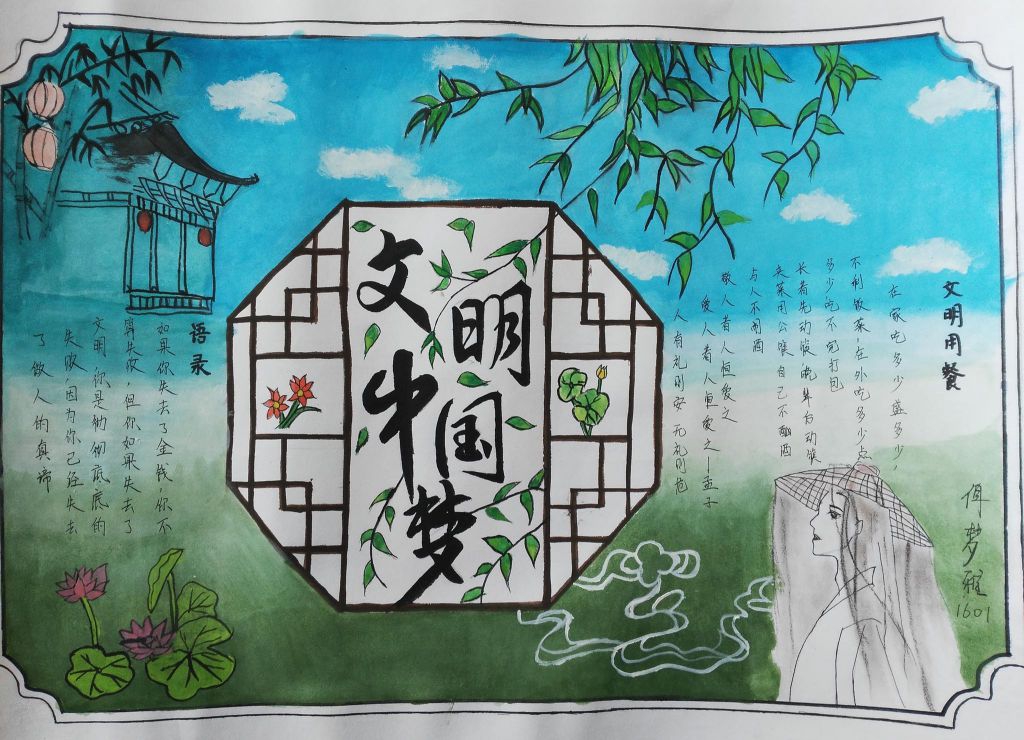 文明
中国
梦
文明用餐
在家吃多少盛多少，
不剩饭菜，在外吃多少点
多少吃不完打包
长者先动筷晚辈后动筷
夹菜用公筷 自己不酗酒
与人不闹酒
敬人者人恒爱之
爱人者人恒爱之—孟子
人有礼则安 无礼则危
俱梦雅
1601
语录
如果你失去了金钱，你不
算失败，但你如果失去了
文明 你是彻彻底底的
失败，因为你已经失去
了做人的真谛